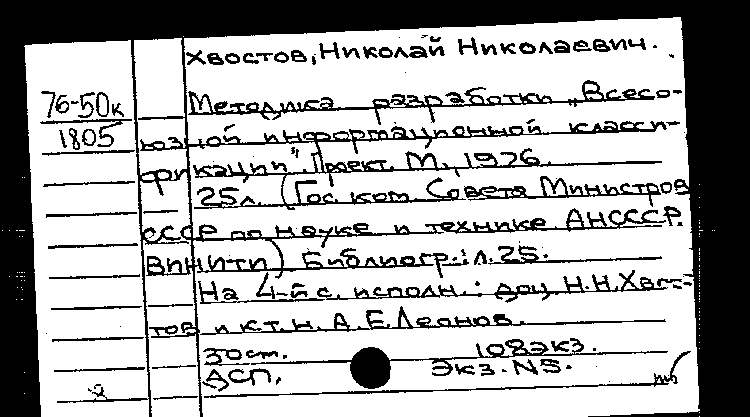 Хвостов, Николай Николаевич.
76-50к Методика разработки „Всесо-
1805 юзной информационной класси-
фикации". Проект. М., 1976.
25л. (Гос. ком. Совета Министров
СССР по науке и технике АНСССР.
ВИНИТИ) Библиогр.: л. 25.
На 4-й с. исполн.: доц. Н.Н. Хвос-
тов и к.т.н. А.Е. Леонов.
30 ст. 108экз.
ДСП. Экз. N5.